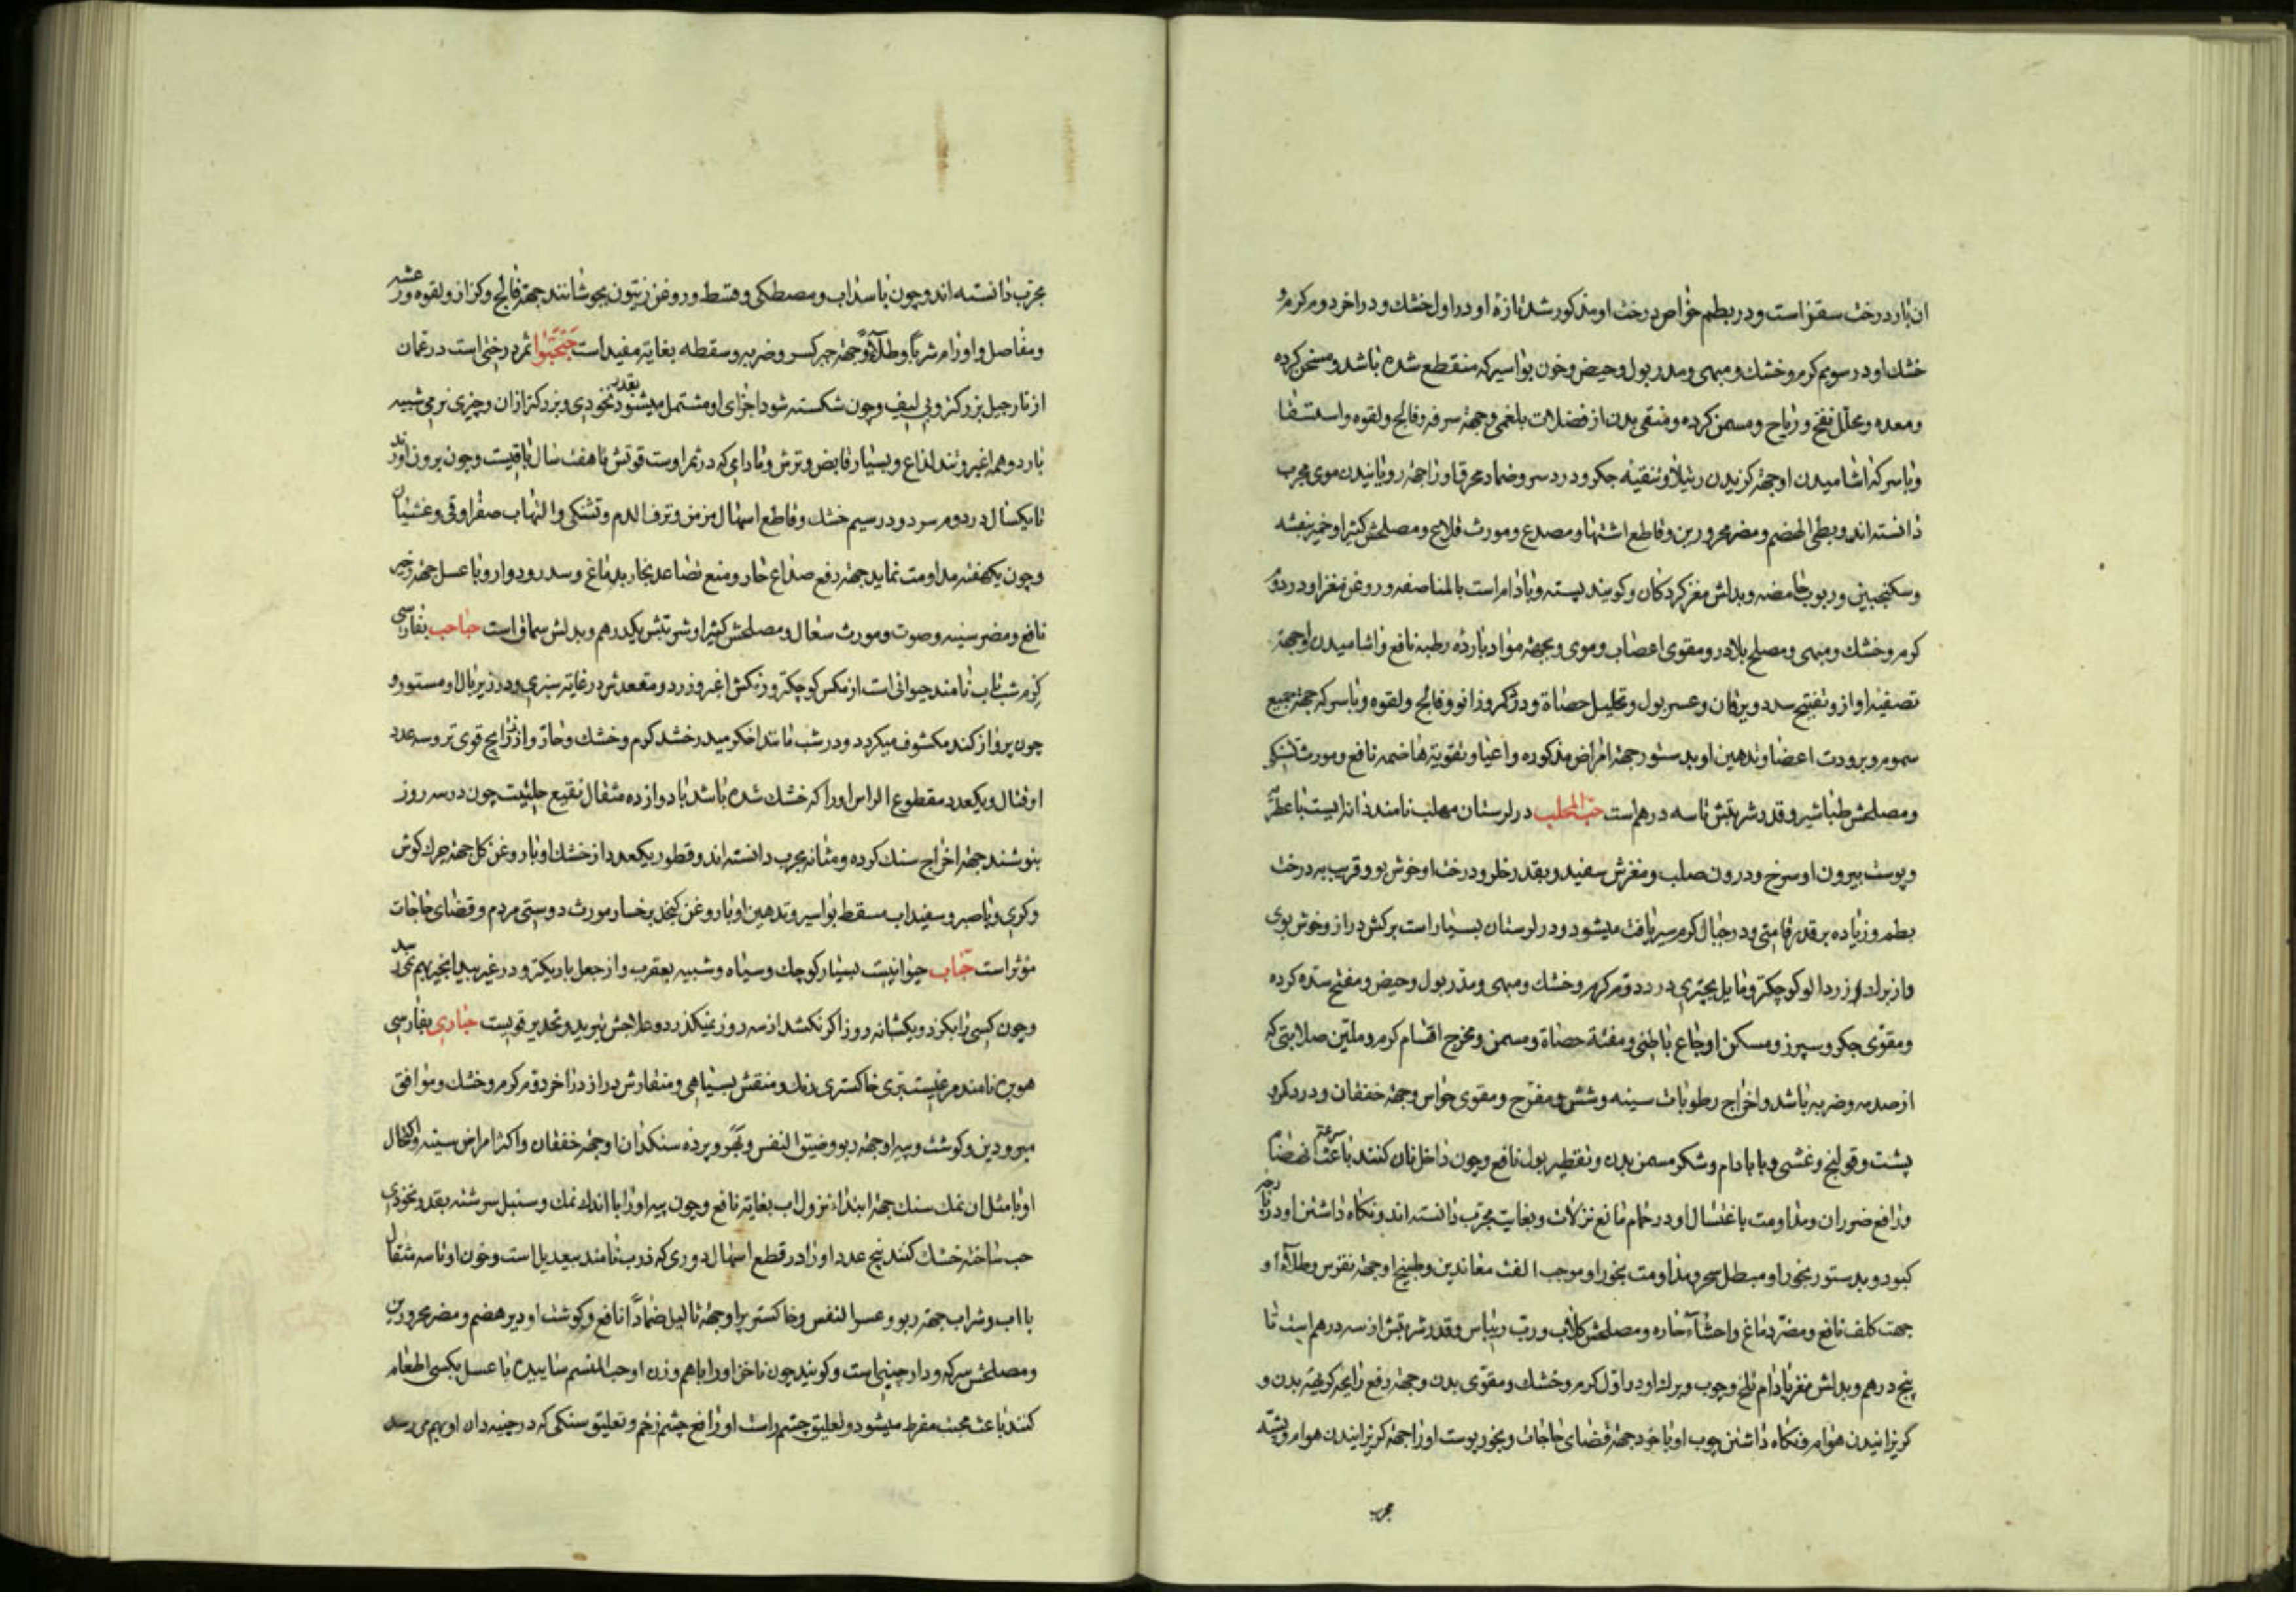 ان بار درخت سقز است و در بطم خواص درخت او مذکور شد تازهٔ او در اول خشك و در اخر دوم کرم و
خشك او در سویم کرم و خشك و مبهی و مدر بول و حیض و خون بواسیر که منقطع شده باشد و مسخن کرده
و معده و محلل نفخ و ریاح و مسمن کرده و منقی بدن از فضلات بلغمی و جهة سرفه و فالج و لقوه و استسقا
و با سرکه اشامیدن او جهة کزیدن رتیلا و تنقیهٔ جکر و درد سر و ضماد محرق او را جهة رویانیدن موی مجرب
دانسته اند و بطی الهضم و مضر محرورین و قاطع اشتها و مصدع و مورث قلاع و مصلحش کثیرا و خمیر بنفشه
و سکنجبین و ربوب حامضه و بدلش مغز کردکان و کویند پسته و بادام است بالمناصفه و روغن مغز او در دوم
کرم و خشك و مبهی و مصلح بلادر و مقوی اعصاب و موی و بجهة مواد بارده رطبه نافع و اشامیدن او جهة
تصفیهٔ اواز و تفتیح سدد و یرقان و عسر بول و تحلیل حصاة و درد کمر و زانو و فالج و لقوه و با سرکه جهة جمیع
سموم و برودت اعضا و تدهین او بدستور جهة امراض مذکوره و اعیا و تقویة هاضمه نافع و مورث تشنکی
و مصلحش طباشیر و قدر شربتش تا سه درهم است حب المحلب در لرستان مهلب نامند دانه ایست با عطریة
و پوست بیرون او سرخ و درون صلب و مغزش سفید و بقدر خلر و درخت او خوش بو و قریب به درخت
بطم و زیاده بر قدر قامتی و در جبال کرم سیر یافت میشود و در لرستان بسیار است برکش دراز و خوش بوی
و از برك زردالو کوچکتر و مایل بچتری در دوم کرم و خشك و مبهی و مدر بول و حیض و مفتح سده کرده
و مقوی جکر و سپرز و مسکن اوجاع باطنی و مفتة حصاة و مسمن و مخرج اقسام کرم و ملین صلابتی که
از صدمه و ضربه باشد و اخراج رطوبات سینه و شش و مفرح و مقوی حواس و جهة خفقان و درد کمر و
پشت و قولنج و غشی و با بادام و شکر مسمن بدن و تقطیر بول نافع و چون داخل نان کنند باعث سرعة انهضام
و رافع ضرر ان و مداومت باغتسال او در حمام مانع نزلات و بغایت مجرب دانسته اند و نکاه داشتن او در پارچه
کبود و بدستور بخور او مبطل سحر و مداومت بخور او موجب الفت معاندین و طبیخ او جهة نقرس و طلاء او
جهت کلف نافع و مضر دماغ و احشاء حاره و مصلحش کلاب و رب ریباس و قدر شربتش از سه درهم است تا
پنج درهم و بدلش مغز بادام تلخ و چوب و برك او در اول کرم و خشك و مقوی بدن و جهة رفع رایحه کریهة بدن و
کریزانیدن هوام و نکاه داشتن چوب او با خود جهة قضای حاجات و بخور پوست او را جهة کریزانیدن هوام و پشه
مجرب
مجرب دانسته اند و چون با سداب و مصطکی و قسط و روغن زیتون بجوشانند جهة فالج و کزاز و لقوه و رعشه
و مفاصل و اورام شربا و طلاء و جهة جبر کسر و ضربه و سقطه بغایة مفید است ثمر درختی است در عمان
از نارجیل بزرکتر و بی لیف و چون شکسته شود اجزای او مشتمل میشود بقدر نخودی و بزرکتر از ان و چیزی نرمی شبیه
بارد و هم اغبر و تند لذاع و بسیار قابض و ترش و مادامی که در ثمر اوست قوتش تا هفت سال باقیست و چون برون اورند
تا یکسال در دوم سرد و در سیم خشك و قاطع اسهال مزمن و نزف الدم و تشنکی و التهاب صفرا و قی و غشیان
و چون یکهفته مداومت نماید جهة رفع صداع حار و منع تصاعد بخار بدماغ و سدر و دوار و با عسل جهة زحیر
نافع و مضر سینه و صوت و مورث سعال و مصلحش کثیرا و شربتش یکدرهم و بدلش سماق است حباحب بفارسی
کرم شب تاب نامند حیوانی است از مکس کوچکتر و رنکش اغبر و زرد و مقعدش در غایة سبزی و در زیر بال او مستور و
چون پرواز کند مکشوف میکردد و در شب مانند اخکر میدرخشد کرم و خشك و حاد و از ذراریح قوی تر و سه عدد
او قتال و یکعدد مقطوع الراس او را که خشك شده باشد با دوازده مثقال نقیع حلتیت چون در سه روز
بنوشند جهة اخراج سنك کرده و مثانه مجرب دانسته اند و قطور یکعدد از خشك او با روغن کل جهة چرك کوش
و کری و با صبر و سفیداب مسقط بواسیر و تدهین او با روغن کنجد بر رخسار مورث دوستی مردم و قضای حاجات
مؤثر است حباب حیوانیست بسیار کوچك و سیاه و شبیه بعقرب و از جعل باریکتر و در غیر بید انجیر بهم نمیرسد
و چون کسی را بکزد و یکشبانه روز اکر نکشد از سه روز نمیکذرد و علاجش تبرید و تخدیر قویست حباری بفارسی
هوبره نامند مرغیست بری خاکستری رنك و منقش بسیاهی و منقارش دراز در اخر دوم کرم و خشك و موافق
مبرودین و کوشت و پیه او جهة ربو و ضیق النفس و بهر و پرده سنکدان او جهة خفقان و اکثر امراض سینه و اکتحال
او با مثل ان نمك سنك جهة ابتداء نزول اب بغایة نافع و چون پیه او را با اندك نمك و سنبل سرشته بقدر نخودی
حب ساخته خشك کنند پنج عدد او را در قطع اسهال دوری که ذرب نامند بیعدیل است و خون او تا سه مثقال
با اب و شراب جهة ربو و عسر النفس و خاکستر پر او جهة ثالیل ضمادا نافع و کوشت او دیر هضم و مضر محرورین
و مصلحش سرکه و دارچینی است و کویند چون ناخن او را با هم وزن او ساییده با عسل بکسی اطعام
کنند باعث محبت مفرط میشود و تعلیق چشم راست او رافع چشم زخم و تعلیق سنکی که در چینه دان او بهم میرسد